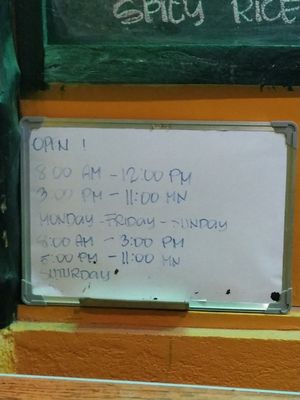 SPICY RICE
OPEN !
8:00 AM - 12:00 PM
3:00 PM - 11:00 MN
MONDAY - FRIDAY - SUNDAY
8:00 AM - 3:00 PM
5:00 PM - 11:00 MN
SATURDAY